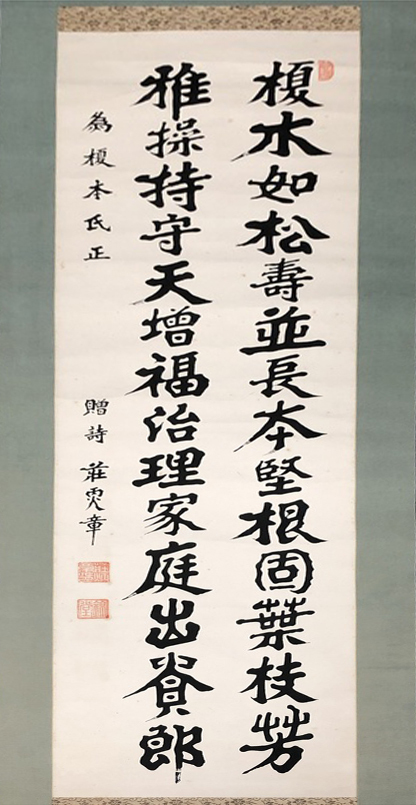 榎木如松壽並長本堅根固葉枝芳
雅操持守天增福治理家庭出貴郎
為榎本氏正
贈詩 莊 章